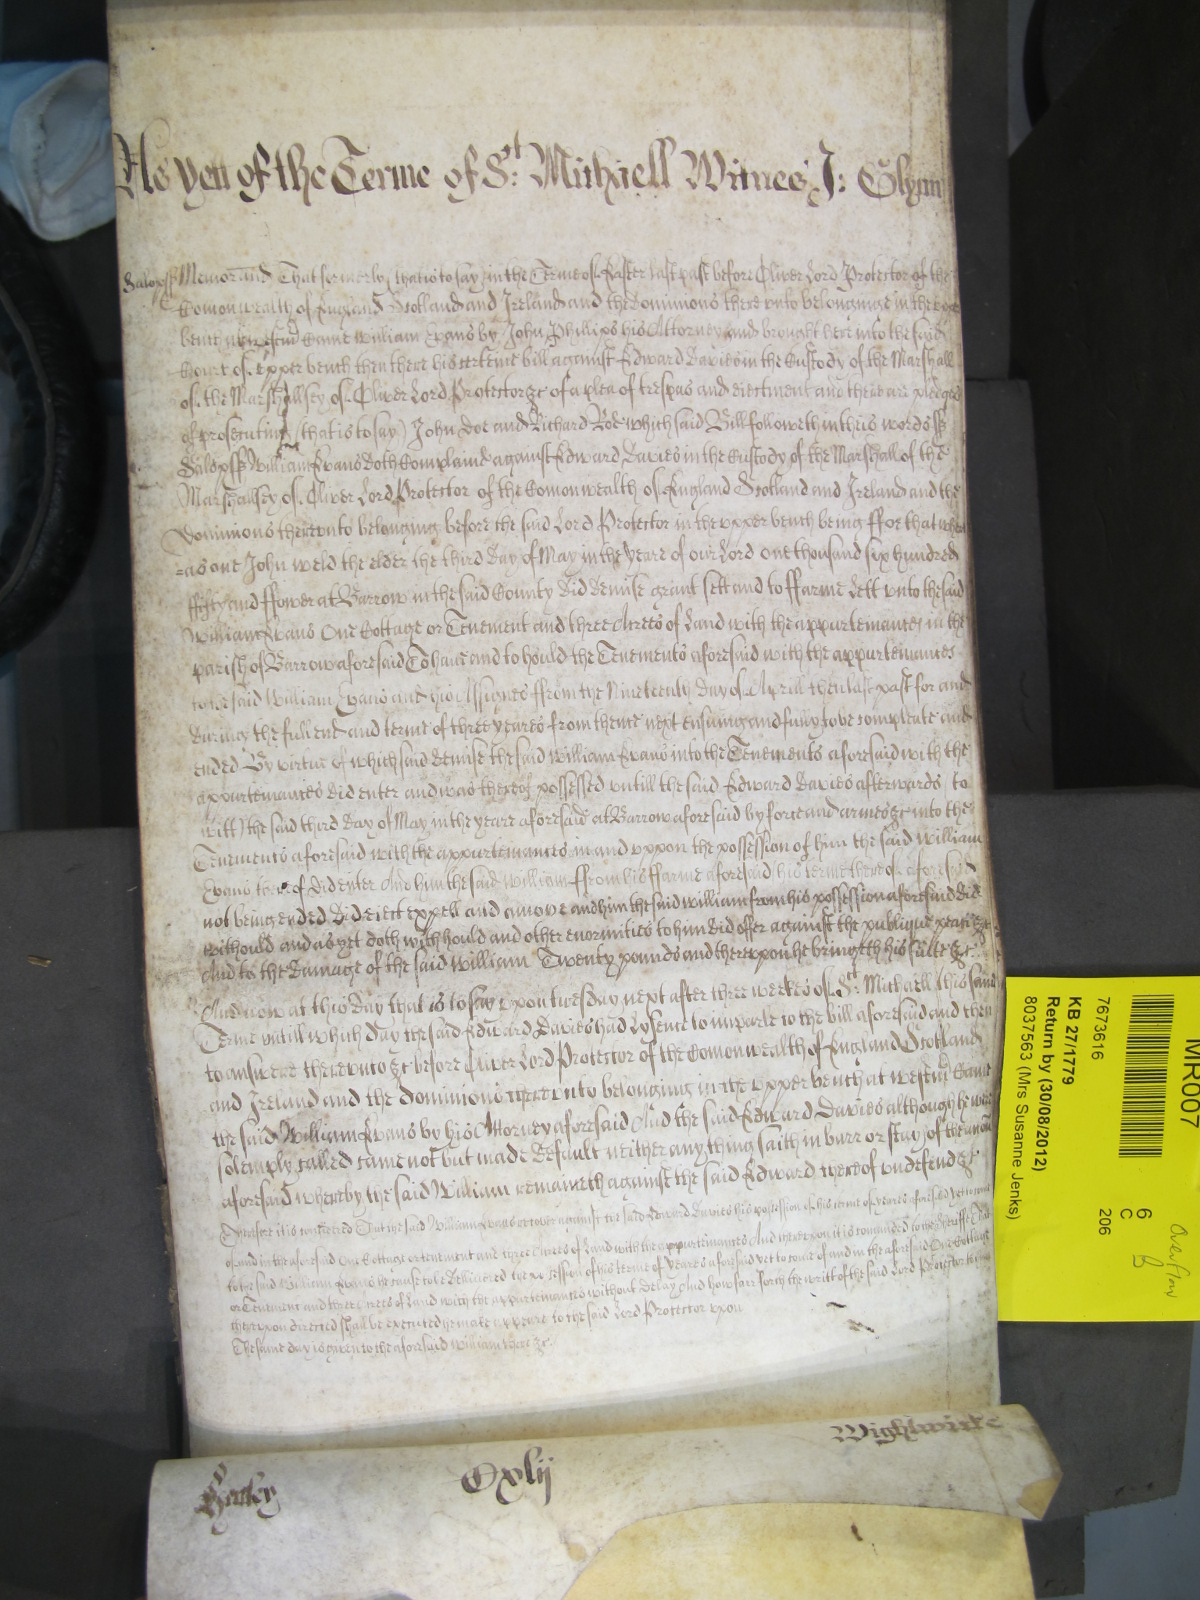 As yett of the Terme of St: Michaell Witnes J: Glynn
Salop ss Memorand That formerly that is to say in the Terme of Easter last past before Oliver Lord Protector of the
Comonwealth of England Scotland and Ireland and the dominions thereunto belonginge in the upper
bench at Westm Came William Evans by John Phillips his Attorney and brought here into the said
Court of upper bench then there his certeine bill against Edward Davies in the Custody of the Marshall
of the Marshallsey of Oliver Lord Protector &c of a plea of trespas and eiectment and there are pledges
of prosecuting (that is to say) John Doe and Richard Roe which said Bill followeth in this words ss
Salop ss William Evans doth Complaine against Edward Davies in the Custody of the Marshall of the
Marshallsey of Oliver Lord Protector of the Comonwealth of England Scotland and Ireland and the
Dominions thereunto belonging before the said Lord Protector in the upper bench being ffor that wher
=as one John Weld the elder the third day of May in the Yeare of our Lord one thousand six hundred
ffifty and ffower at Barrow in the said County did demise grant sett and to ffarme Lett unto the said
William Evans One Cottage or Tenement and three Acres of Land with the appurtenances in the
parish of Barrow aforesaid To have and to hould the Tenements aforesaid with the appurtenances
to the said William Evans and his Assignes ffrom the Nineteenth day of Aprill then last past for and
during the full end and terme of three yeares from thence next ensuing and fully to be compleate and
ended By virtue of which said demise the said William Evans into the Tenements aforesaid with the
appurtenances did enter and was thereof possessed untill the said Edward Davies afterwards (to
witt) the said third day of May in the yeare aforesaid at Barrow aforesaid by force and armes &c into the
Tenements aforesaid with the appurtenances in and uppon the possession of him the said William
Evans thereof did enter And him the said William ffrom his ffarme aforesaid his terme thereof aforesaid
not being ended did eiect expell and amove and him the said William from his possession aforesaid did
withould and as yet doth withhould and other enormities to him did offer against the publique peace &c
And to the damage of the said William Twenty pounds and thereupon he bringeth his suite &c
And now at this day that is to say upon tuesday next after three weekes of St Michaell this same
Terme untill which day the said Edward Davies had Lysence to imparle to the bill aforesaid and then
to answere thereunto &c before Oliver Lord Protector of the Comonwealth of England Scotland
and Ireland and the dominions thereunto belonging in the upper bench at Westm Came
the said William Evans by his Attorney aforesaid And the said Edward Davies although he were
solemply called came not but made default neither any thing saith in barr or stay of the accon
aforesaid whereby the said William remaineth against the said Edward thereof undefended &c
Therefore it is considered That the said William Evans recover against the said Edward Davies his possession of his terme of yeares aforesaid yet to come
of and in the aforesaid One Cottage or tenement and three Acres of Land with the appurtenances And thereupon it is comanded to the Sheriffe That
to the said William Evans he cause to be delivered the possession of his terme of yeares aforesaid yet to come of and in the aforesaid One Cottage
or Tenement and three Acres of Land with the appurtenances without delay And how farr forth the writt of the said Lord Protector to him
thereupon directed shall be executed he make appeare to the said Lord Protector upon
The same day is given to the aforesaid William there &c
Wightwicke
Henley
Cxlij
MR007
7673616
KB 27/1779
Return by (30/08/2012)
8037563 (Mrs Susanne Jenks)
6
C
206
Overflow